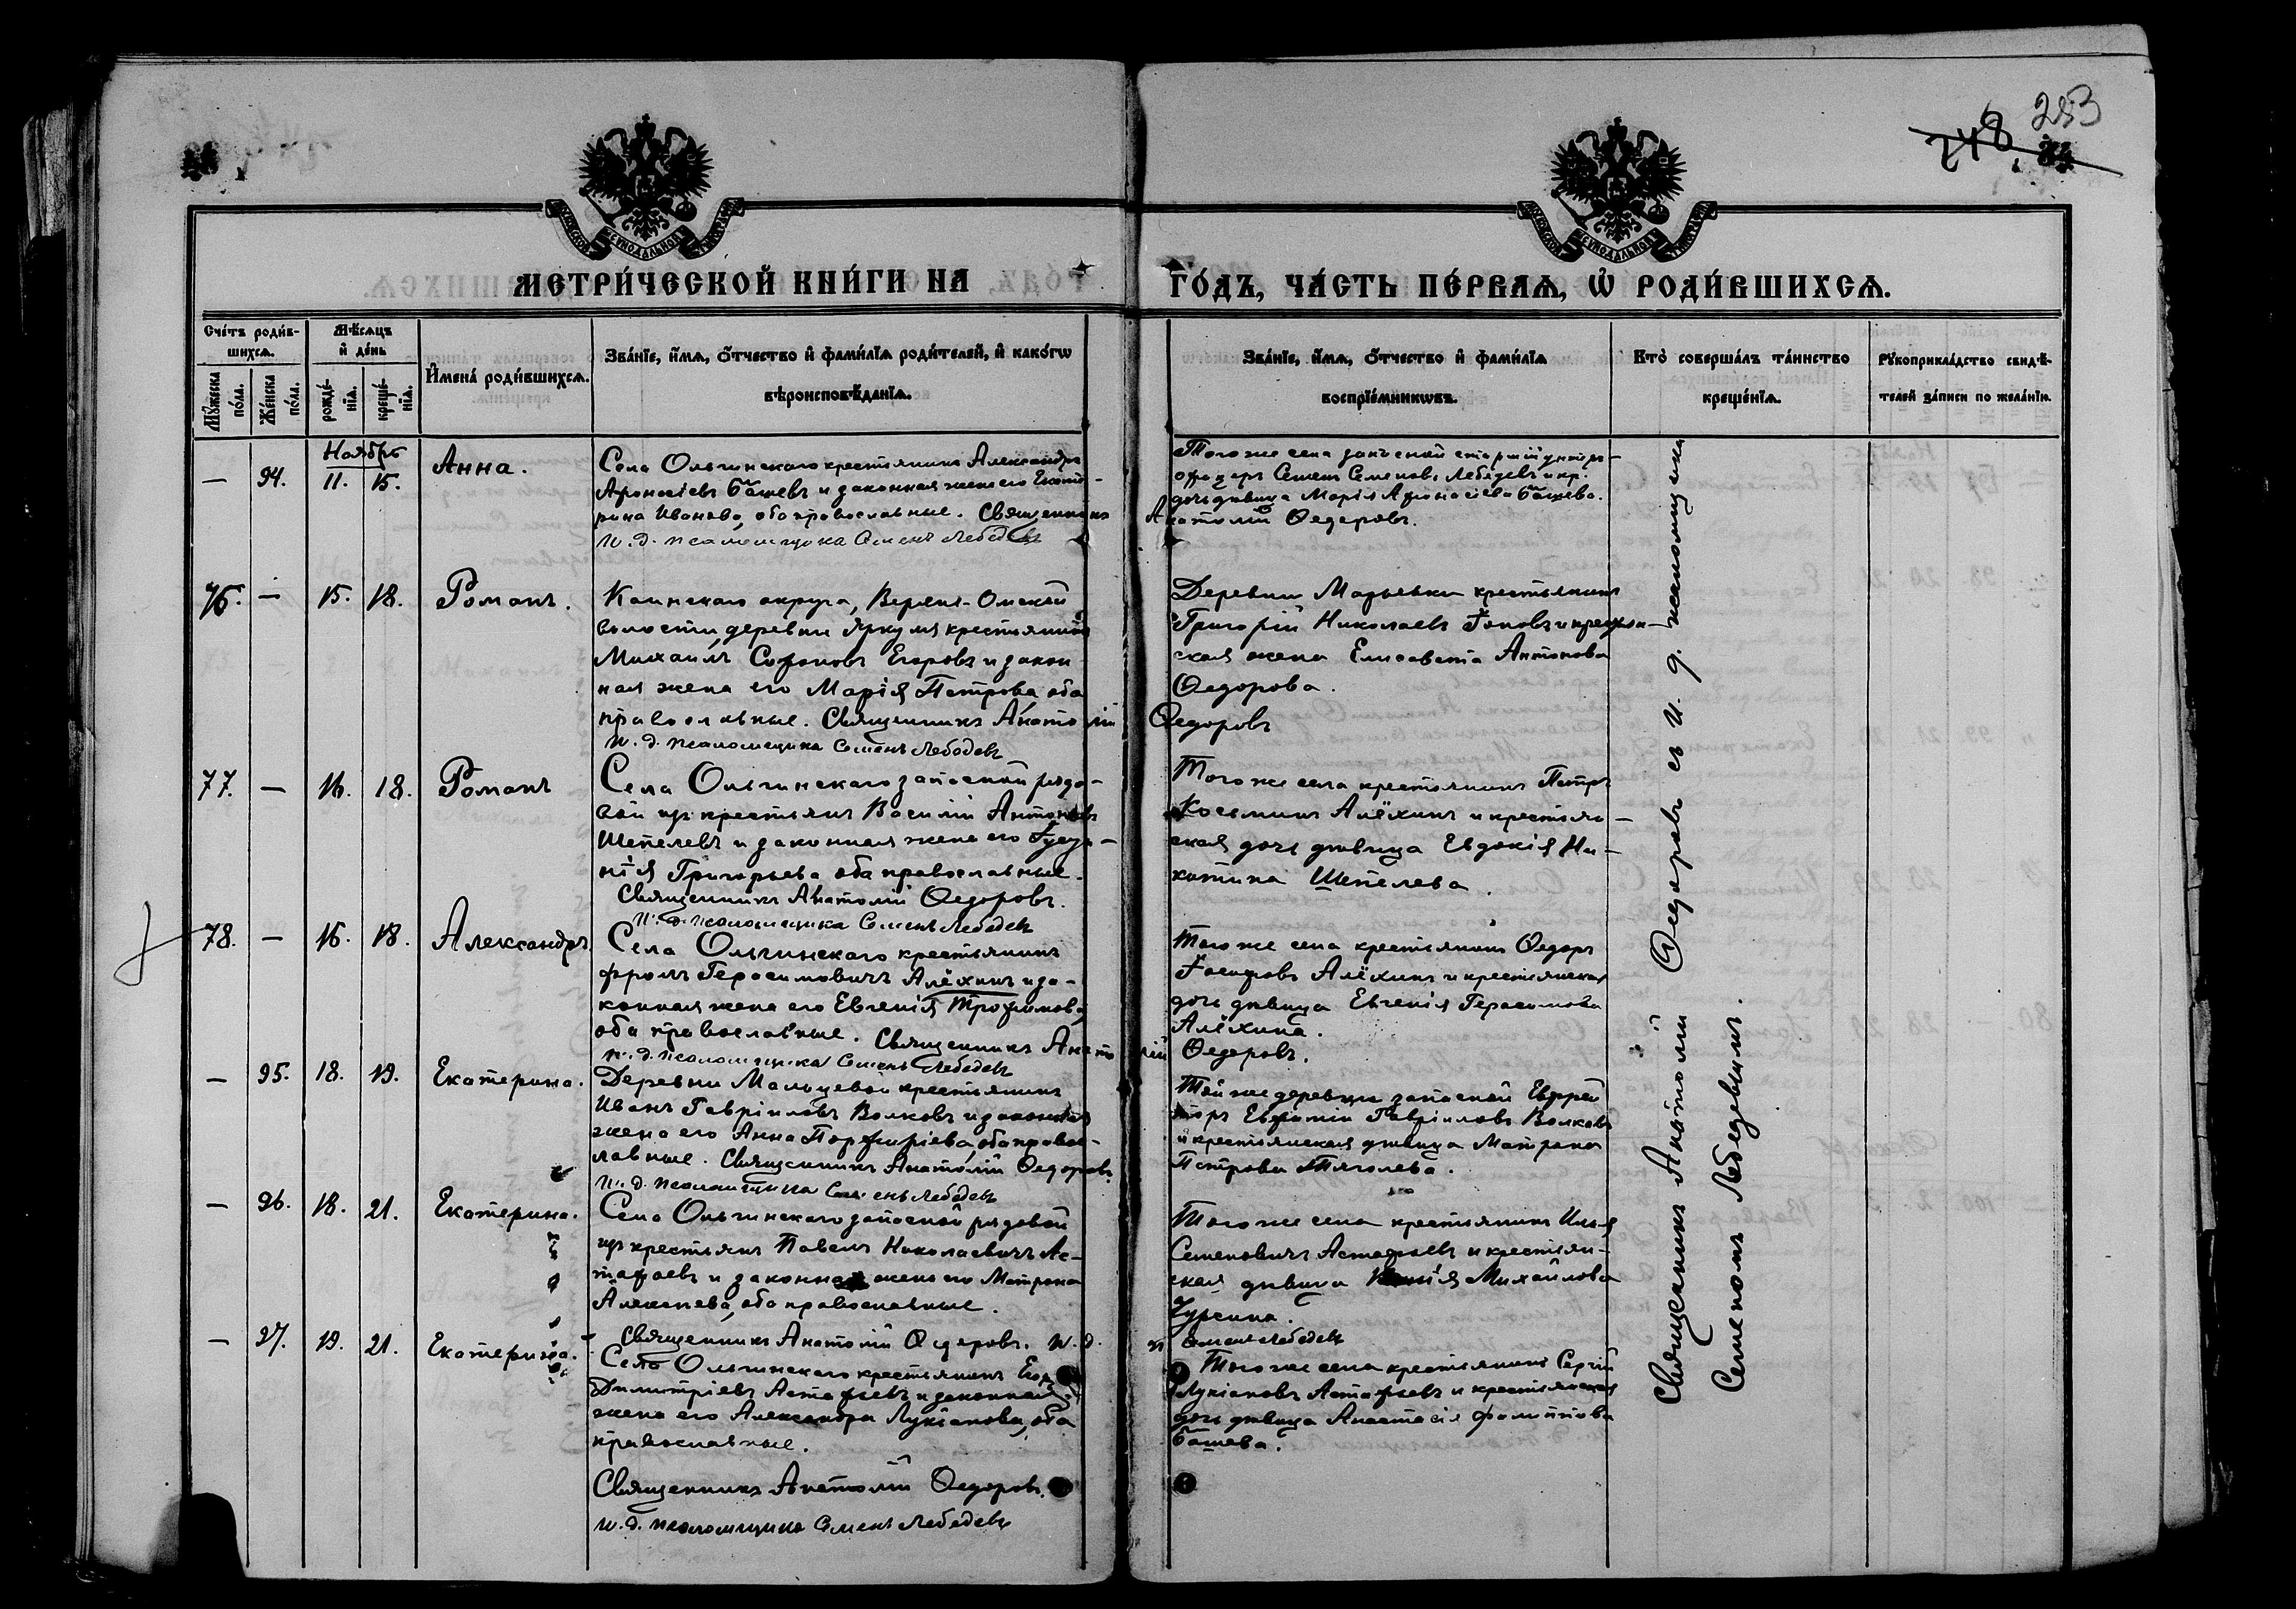 253
МОСКОВСКОЙ СѴНОДАЛЬНОЙ ТИПОГРАФІИ
МОСКОВСКОЙ СѴНОДАЛЬНОЙ ТИПОГРАФІИ
МЕТРИ́ЧЕСКОЙ КНИ́ГИ НА
ГО́ДЪ, ЧА́СТЬ ПЕ́РВАѦ, Ѿ РОДИ́ВШИХСѦ.
Сче́тъ роди́в-
шихсѧ.
Мѣ́сѧцъ
и҆ де́нь
И҆мена̀ роди́вшихсѧ.
Зва́нїе, и҆́мѧ, ѻ҆́тчество и҆ фами́лїѧ роди́телей, и҆ како́гѡ
вѣроисповѣ́данїѧ.
Зва́нїе, и҆́мѧ, ѻ҆́тчество и҆ фами́лїѧ
воспрїе́мникѡвъ.
Кто̀ соверша́лъ та́инство
креще́нїѧ.
Рꙋкоприкла́дство свидѣ́-
телей за́писи по жела́нїю.
Мꙋ́жеска
по́ла.
Же́нска
по́ла.
рожде́-
нїѧ.
креще́-
нїѧ.
Ноябрь
— 94. 11. 15. Анна.
Села Ольгинскаго крестьянинъ Александръ
Афонасіевъ Башевъ и законная жена его Екате-
рина Иванова, оба православные. Священникъ
Анатолій Ѳедоровъ.
И. д. псаломщика Семенъ Лебедевъ
Того же села запасной старшій унтеръ-
офицеръ Семенъ Семеновъ Лебедевъ и кр.
дочь дѣвица Марія Афонасіева Башева.
76. — 15. 18. Романъ.
Каинскаго округа, Верхне-Омской
волости, деревни Яркуля крестьянинъ
Михаилъ Софоновъ Егоровъ и закон-
ная жена его Марія Петрова, оба
православные. Священникъ Анатолій Ѳедоровъ
И. д. псаломщика Семенъ Лебедевъ
Деревни Марьевки крестьянинъ
Григорій Николаевъ и крестьян-
ская жена Елисавета Антонова
Ѳедорова.
77. — 16. 18. Романъ
Села Ольгинскаго запасной рядо-
вой изъ крестьянъ Василій Антоновъ
Шепелевъ и законная жена его
Григорьева оба православные.
Священникъ Анатолій Ѳедоровъ.
И. д. псаломщика Семенъ Лебедевъ
Того же села крестьянинъ Петръ
Косьминъ Алёхинъ и крестьян-
ская дочь дѣвица Евдокія Ни-
китина Шепелева.
78. — 16. 18. Александръ.
Села Ольгинскаго крестьянинъ
Фролъ Герасимовичъ Алёхинъ и за-
конная жена его Евгенія Трофимова,
оба православные. Священникъ Анатолій Ѳедоровъ.
И. д. псаломщика Семенъ Лебедевъ
Того же села крестьянинъ Ѳедоръ
Іосифовъ Алёхинъ и крестьянская
дочь дѣвица Евгенія Герасимова
Алёхина.
— 95. 18. 19. Екатерина.
Деревни Мальцевой крестьянинъ
Иванъ Гавріиловъ Волковъ и законная
жена его Анна Порфиріева, оба право-
славные. Священникъ Анатолій Ѳедоровъ.
И. д. псаломщика Семенъ Лебедевъ
Той же деревни запасной Ефрей
торъ Евфимій Гавріиловъ Волковъ
и крестьянская дѣвица Матрона
Петрова Тяголева.
— 96. 18. 21. Екатерина.
Села Ольгинскаго запасной рядовой
изъ крестьянъ Павелъ Николаевичъ Ас-
тафьевъ и законная жена его Матрона
Алексѣева, оба православные.
Священникъ Анатолій Ѳедоровъ. И. д. п Семенъ Лебедевъ
Того же села крестьянинъ Илья
Семеновичъ Астафьевъ и крестьян-
ская дѣвица Михайлова
— 97. 19. 21. Екатерина.
Села Ольгинскаго крестьянинъ Егоръ
Димитріевъ Астафьевъ и законная
жена его Александра Лукіанова, оба
православные.
Священникъ Анатолій Ѳедоровъ.
И. д. псаломщика Семенъ Лебедевъ
Того же села крестьянинъ Сергій
Лукіановъ Астафьевъ и крестьянская
дочь дѣвица Анастасія Филиппова
Башева.
Священникъ Анатолій Ѳедоровъ съ И. д. псаломщика
Семеномъ Лебедевымъ.